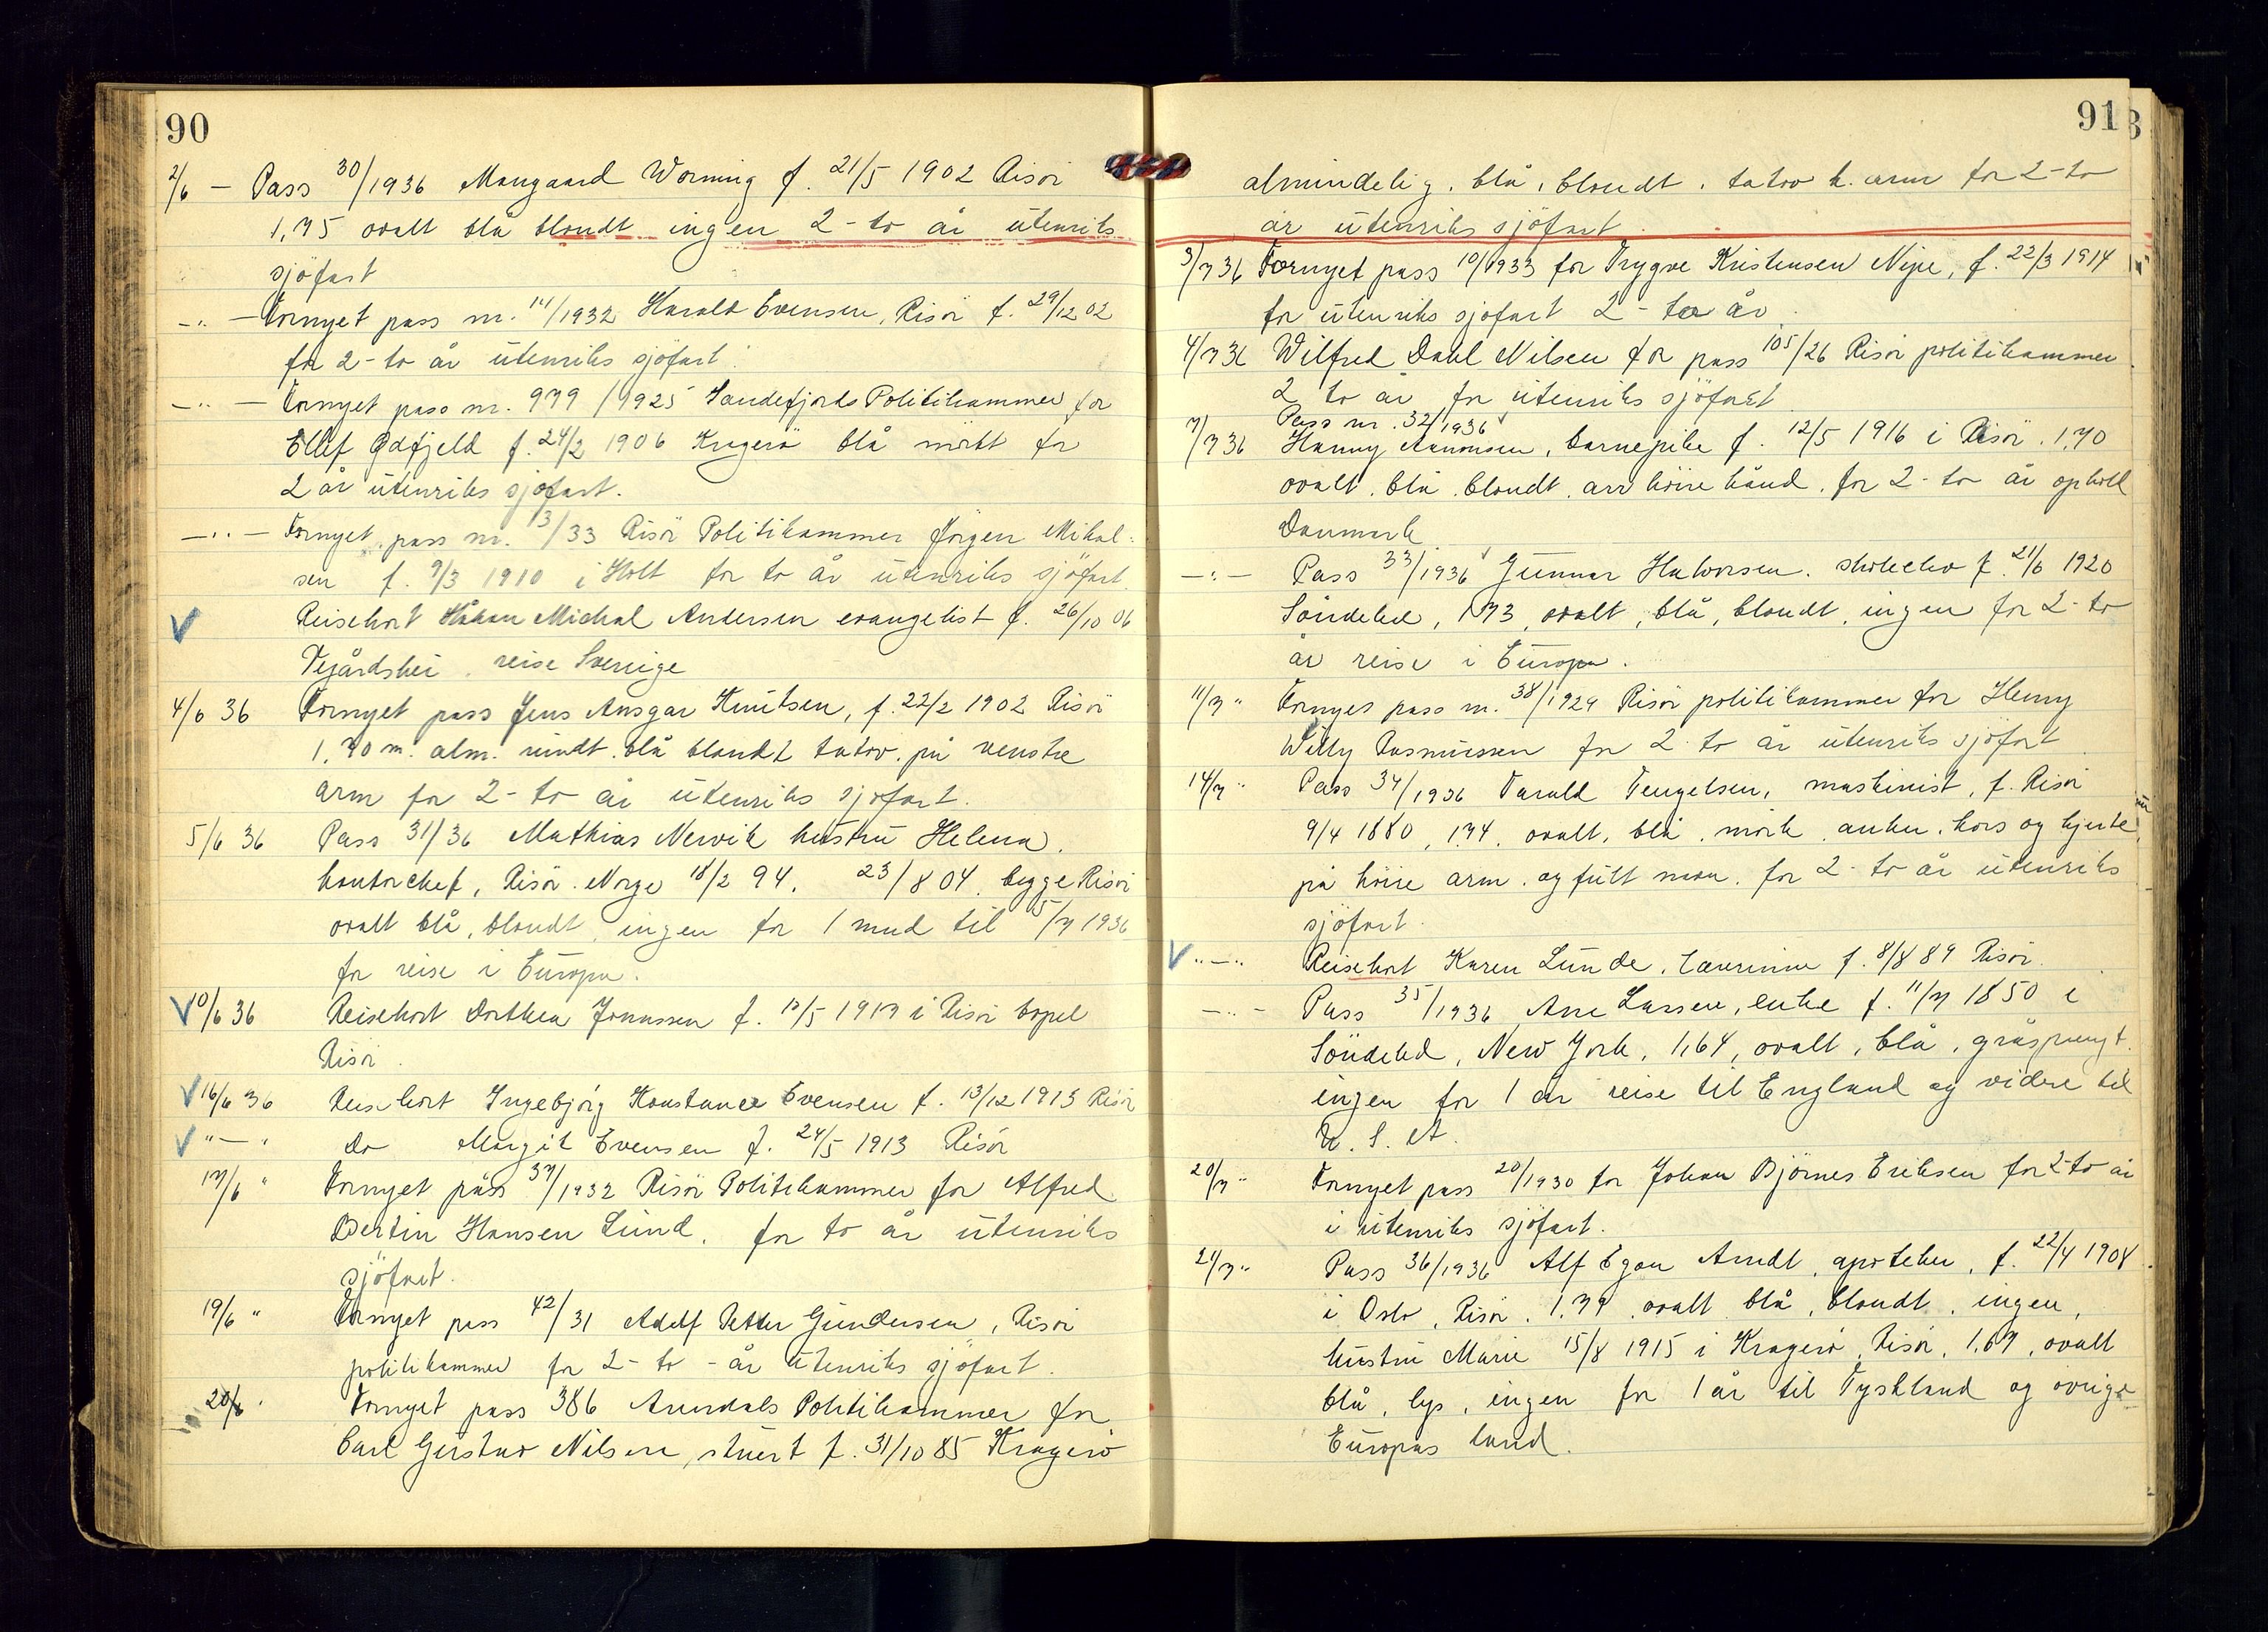 90
2/6 — Pass 30/1936 Mangaard Worning f. 21/5 1902 Risör
1,75 ovalt blå blondt ingen 2-to år utenriks
sjöfart
-"- Fornyet pass nr. 11/1932 Harald Evensen, Risör f. 29/12 02
for 2-to år utenriks sjöfart.
-"- Fornyet pass nr. 979/1925 Sandefjords Politikammer for
Ellef Gdfjeld f. 24/2 1906 Kragerö blå mörkt for
2 år utenriks sjöfart.
-"- Fornyet pass nr. 13/33 Risör Politikammer Jörgen Mikal-
sen f. 9/3 1910 i Holt for to år utenriks sjöfart.
Reisekort Håkon Michal Andersen evangelist f. 26/10 06
Vegårdshei. reise Sverige
4/6 36 Fornyet pass Jens Ansgar Knutsen, f. 22/2 1902 Risör
1,70 m. alm. rundt. blå blondt tatov. på venstre
arm for 2-to år utenriks sjöfart.
5/6 36 Pass 31/36 Mathias Nervik hustru Helena.
kontorchef, Risör. Norge 18/2 94. 23/8 04. begge Risör
ovalt blå, blondt, ingen for 1 mnd til 5/7 1936
for reise i Europa.
10/6 36 Reisekort Dorthea Jonassen f. 10/5 1917 i Risör bopel
Risör.
16/6 36 Reisekort Ingebjörg Konstance Evensen f. 13/12 1915 Risör
"—" Do Margit Evensen f. 24/5 1913 Risör
17/6 " Fornyet pass 37/1932 Risör Politikammer for Alfred
Bertin Hansen Lund. for to år utenriks
sjöfart.
19/6 " Fornyet pass 42/31 Adolf Petter Gundersen, Risör
politikammer for 2-to-år utenriks sjöfart.
20/6 " Fornyet pass 386 Arendals Politikammer for
Carl Gustav Nilsen, stuert f. 31/10 85 Kragerö
91
almindelig, blå, blondt, tatov h. arm for 2-to
år utenriks sjöfart.
3/7 36 Fornyet pass 10/1933 for Trygve Kristensen Nipe, f. 22/3 1914
for utenriks sjöfart 2-to år.
4/7 36 Wilfred Dahl Nilsen for pass 105/26 Risör politikammer
2 to år for utenriks sjöfart
Pass nr. 32/1936
7/7 36 Hanny Aanonsen, barnepike f. 12/5 1916 i Risör. 1,70
ovalt, blå, blondt, arr höire hånd, for 2-to år ophold
Danmark
-"- Pass 33/1936 Gunnar Halvorsen, skoleelev f. 21/6 1920
Söndeled, 1,73, ovalt, blå, blondt, ingen for 2-to
år reise i Europa.
11/7 " Fornyes pass nr. 38/1929 Risör politikammer for Henry
Willy Rasmussen for 2-to år utenriks sjöfart.
14/7 " Pass 34/1936 Tarald Tengelsen, maskinist, f. Risör
9/4 1880, 1.74, ovalt, blå, mörk, anker, kors og hjerte
på höire arm, og fullt mon. for 2-to år utenriks
sjöfart.
"—" Reisekort Karen Lunde, lærerinne f. 8/8 89 Risör.
-"- Pass 35/1936 Ane Larsen, enke f. 11/7 1850 i
Söndeled, New York, 1,64, ovalt, blå, gråsprengt.
ingen for 1 år reise til England og videre til
U. S. A.
20/7 " Fornyet pass 20/1930 for Johan Björnes Eriksen for 2-to år
i utenriks sjöfart.
21/7 " Pass 36/1936 Alf Egon Arndt, apoteker, f. 22/4 1908
i Oslo, Risör, 1.79, ovalt blå, blondt, ingen,
hustru Marie 15/8 1915 i Kragerö, Risör, 1.67, ovalt
blå, lys, ingen for 1 år til Tyskland og övrige
Europas land.